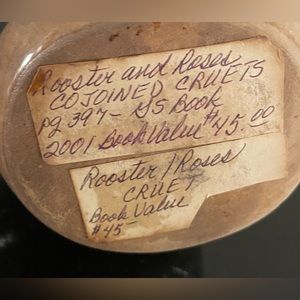 Rooster and Roses
COJOINED CRUETS
pg 397- GS Book
2001 Book Value $45.00
Rooster/Roses
CRUET
Book Value
$45-